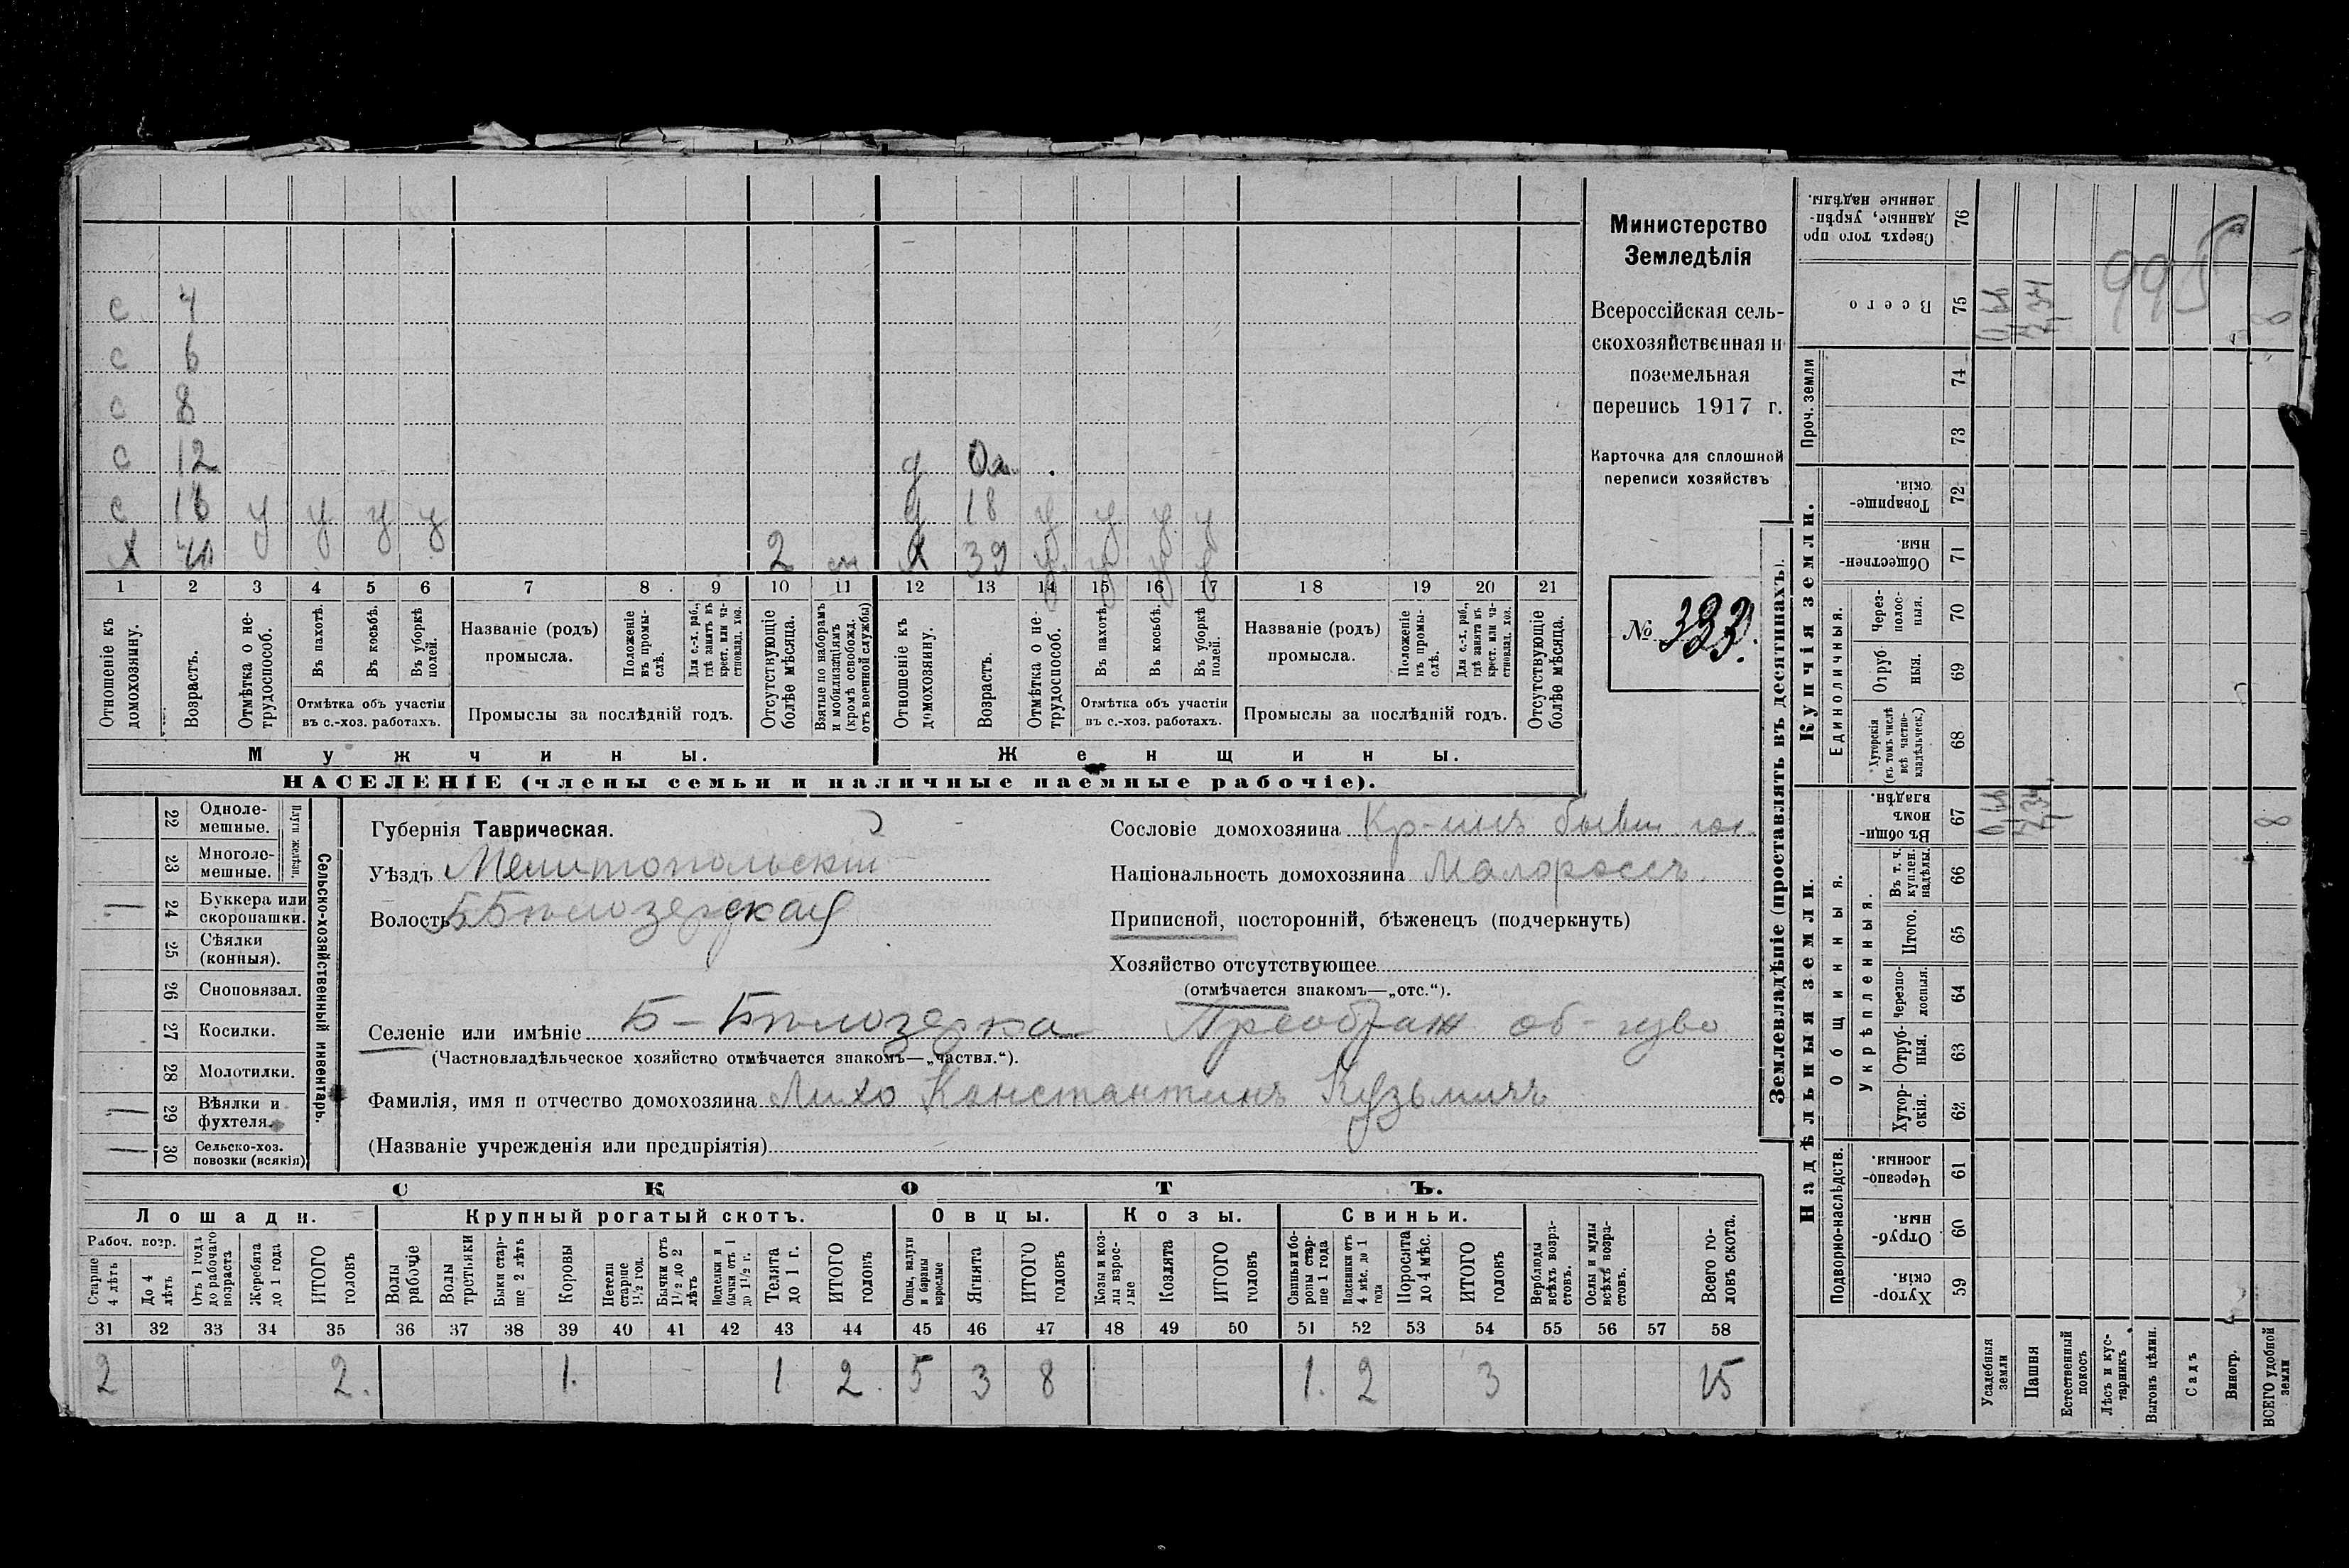 с 4
с 6
с 8
с 12 д
с 16 у у у у д 18 у у у у
х 2 х 39 у у у у
1 2 3 4 5 6 7 8 9 10 11 12 13 14 15 16 17 18 19 20 21
Отношеніе къ домохозяину.
Возрастъ.
Отмѣтка о не-трудоспособ.
Въ пахотѣ.
Въ косьбѣ.
Въ уборкѣ полей.
Отмѣтка объ участіи
въ с.-хоз. работахъ.
Названіе (родъ)
промысла.
Положеніе въ промы-слѣ.
Для с.-х. раб., гдѣ занятъ въ крест. или ча-стновлад. хоз.
Промыслы за послѣдній годъ.
Отсутствующіе болѣе мѣсяца.
Взятые по наборамъ и мобилизаціямъ (кромѣ освобожд. отъ военной службы)
Отношеніе къ домохозяину.
Возрастъ.
Отмѣтка о не-трудоспособ.
Въ пахотѣ.
Въ косьбѣ.
Въ уборкѣ полей.
Отмѣтка объ участіи
въ с.-хоз. работахъ.
Названіе (родъ)
промысла.
Положеніе въ промы-слѣ.
Для с.-х. раб., гдѣ занята въ крест. или ча-стновлад. хоз.
Промыслы за послѣдній годъ.
Отсутствующіе болѣе мѣсяца.
Мужчины. Женщины.
НАСЕЛЕНІЕ (члены семьи и наличные наемные рабочіе).
Министерство
Земледѣлія
Всероссійская сель-
скохозяйственная и
поземельная
перепись 1917 г.
Карточка для сплошной
переписи хозяйствъ
№ 333.
Сельско-хозяйственный инвентарь.
Плуги желѣзн.
22 Одноле-мешные.
23 Многоле-мешные.
24 Буккера или скоропашки.
25 Сѣялки (конныя).
26 Сноповязал.
27 Косилки.
28 Молотилки.
29 Вѣялки и фухтеля.
30 Сельско-хоз. повозки (всякія)
Губернія Таврическая.
Уѣздъ Мелитопольскій
Волость ББѣлозерская
Сословіе домохозяина Кр-инъ бывш.
Національность домохозяина Малороссъ
Приписной, посторонній, бѣженецъ (подчеркнуть)
Хозяйство отсутствующее
(отмѣчается знакомъ—„отс.“).
Селеніе или имѣніе Б-Бѣлозерка Преображ об-
(Частновладѣльческое хозяйство отмѣчается знакомъ—„частвл.“).
Фамилія, имя и отчество домохозяина Лихо Константинъ Кузьмичъ
(Названіе учрежденія или предпріятія)
СКОТЪ.
Лошади. Крупный рогатый скотъ. Овцы. Козы. Свиньи.
Рабоч. возр.
Старше 4 лѣтъ
До 4 лѣтъ
Отъ 1 года до рабочаго возраста
Жеребята до 1 года
ИТОГО головъ
Волы рабочіе
Волы третьяки
Быки стар-ше 2 лѣтъ
Коровы
Нетели старше 1½ год.
Бычки отъ 1½ до 2 лѣтъ
Подтелки и бычки отъ 1 до 1½ г.
Телята до 1 г.
ИТОГО головъ
Овцы, валухи и бараны взрослые
Ягнята
ИТОГО головъ
Козы и коз-лы взрос-лые
Козлята
ИТОГО головъ
Свиньи и бо-ровы стар-ше 1 года
Подсвинки отъ 4 мѣс. до 1 года
Поросята до 4 мѣс.
ИТОГО головъ
Верблюды всѣхъ возра-стовъ.
Ослы и мулы всѣхъ возра-стовъ.
Всего го-ловъ скота.
31 32 33 34 35 36 37 38 39 40 41 42 43 44 45 46 47 48 49 50 51 52 53 54 55 56 57 58
2 2. 1. 1 2. 5 3 8 1. 2 3 15
Землевладѣніе (проставлять въ десятинахъ).
Надѣльныя земли. Купчія земли.
Подворно-наслѣдств.
Общинныя.
Укрѣпленныя.
Единоличныя.
Проч. земли
59 Хутор-скія.
60 Отруб-ныя.
61 Черезпо-лосныя.
62 Хутор-скія.
63 Отруб-ныя.
64 Черезпо-лосныя.
65 Итого.
66 Въ т. ч. куплен. надѣлы.
67 Въ общи-номъ владѣн.
68 Хуторскія (въ томъ числѣ всѣ частно-владѣльческ.)
69 Отруб-ныя.
70 Через-полос-ныя.
71 Обществен-ныя.
72 Товарище-скія.
73
74
75 Всего
76 Сверхъ того про-данные, укрѣп-ленные надѣлы.
Усадебныя земли
Пашня
Естественный покосъ
Лѣсъ и кус-тарникъ
Выгонъ цѣлин.
Садъ
Виногр.
ВСЕГО удобной земли
8
8
995